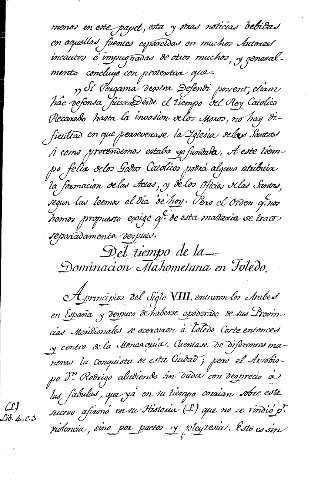 menos en este papel, esta y otras noticias bebidas
en aquellas fuentes esparcidas en muchos Autores
incautos è impugnadas de otros muchos, y general-
mente concluyo con protestar que
,, Si Pergama dextra Defendi possent, etiam
hâc defensa fuissent desde el tiempo del Rey Catolico
Recaredo hasta la invasion de los Moros, no hay di-
ficultad en que perseverase la Iglesia de los Santos
si como pretendemos estaba ya fundada. A este tiem-
po feliz de los Godos Catolicos podrà alguno atribuir
la formacion de las Actas, y de los Oficios de los Santos,
segun las leemos el dia de hoy. Pero el Orden q.e nos
hemos propuesto exige q.e de esta materia se trate
separadamente despues.
Del tiempo de la
Dominacion Mahometana en Toledo.
A principios del Siglo VIII. entraron los Arabes
en España y despues de haberse apoderado de sus Provin-
cias Meridionales se acercaron à Toledo Corte entonces
y centro de la Monarquia. Cuentase de diferentes ma-
neras la conquista de esta Ciudad; pero el Arzobis-
po D.n Rodrigo aludiendo sin duda con desprecio à
las fabulas, que yà en su tiempo corrian sobre este
suceso afirmò en su Historia (1) que no se rindiò p.r
violencia, sino por pactos y Esto es sin
(1)
Lib. 4. c. 3